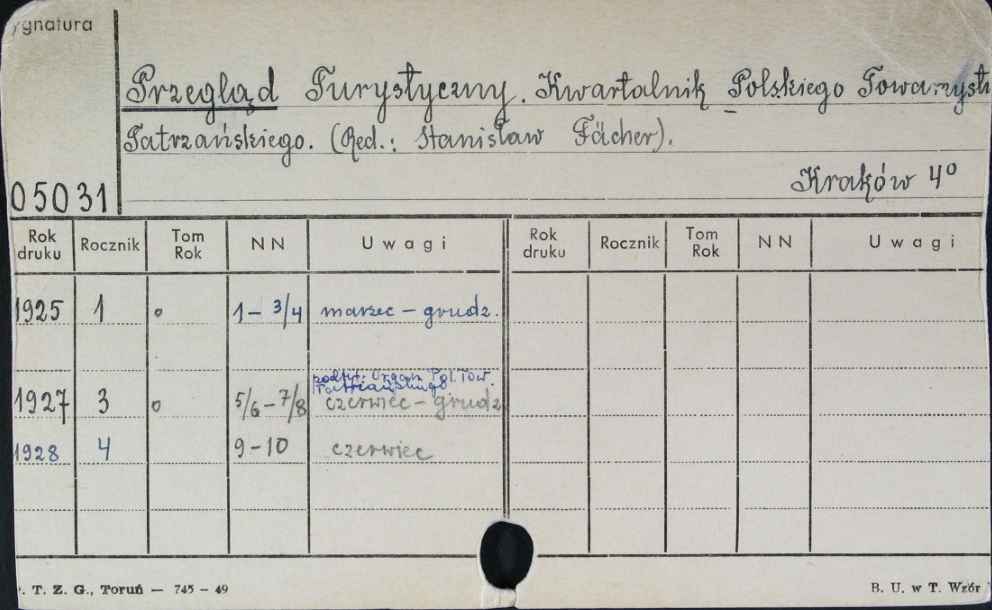 ygnatura
Przegląd Turystyczny. Kwartalnik Polskiego Towarzyst
Tatrzańskiego. (Red.: Stanisław Fächer).
Kraków 4º
05031
Rok druku Rocznik Tom Rok NN Uwagi Rok druku Rocznik Tom Rok NN Uwagi
1925 1 o 1 – 3/4 marzec – grudz.
podtyt. Organ Pol. Tow.
Tatrzańskiego
1927 3 o 5/6 – 7/8 czerwiec – grudz
1928 4 9-10 czerwiec
. T. Z. G., Toruń — 745 – 49
B. U. w T. Wzór